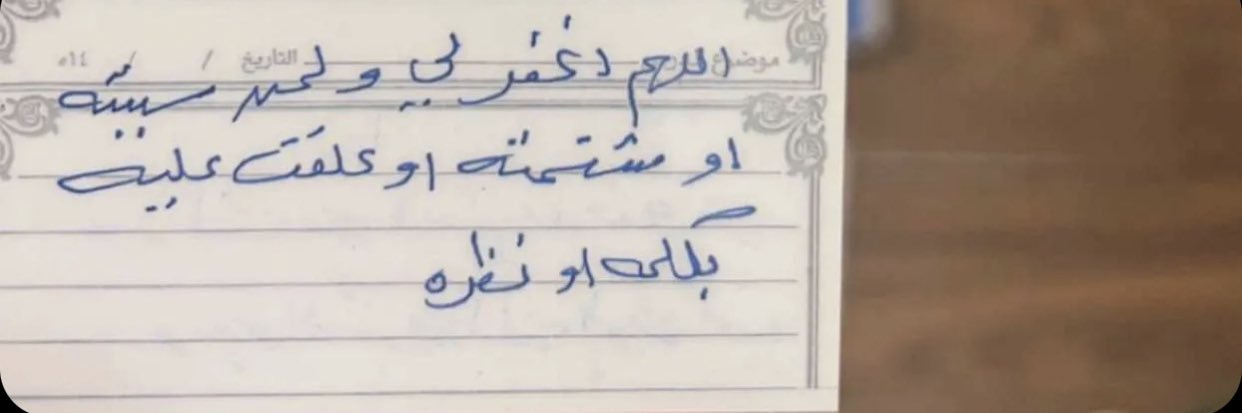 موضوع الدرس التاريخ / / ١٤هـ
اللهم اغفر لي ولمن سببته
او شتمته او علقت عليه
بكلمه او نظره